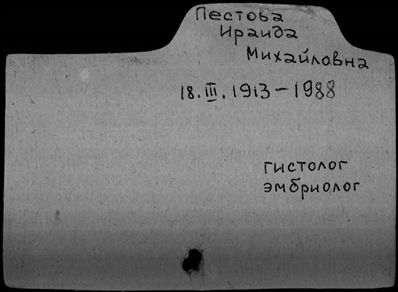 Пестова
Ираида
Михайловна
18.III.1913-1988
гистолог
эмбриолог